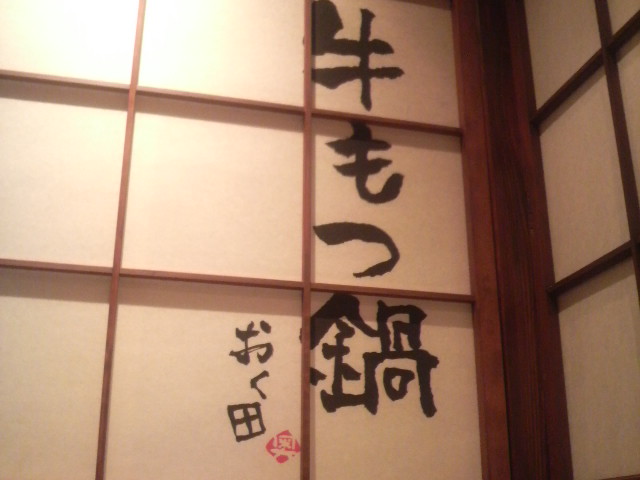 牛もつ鍋
おく田